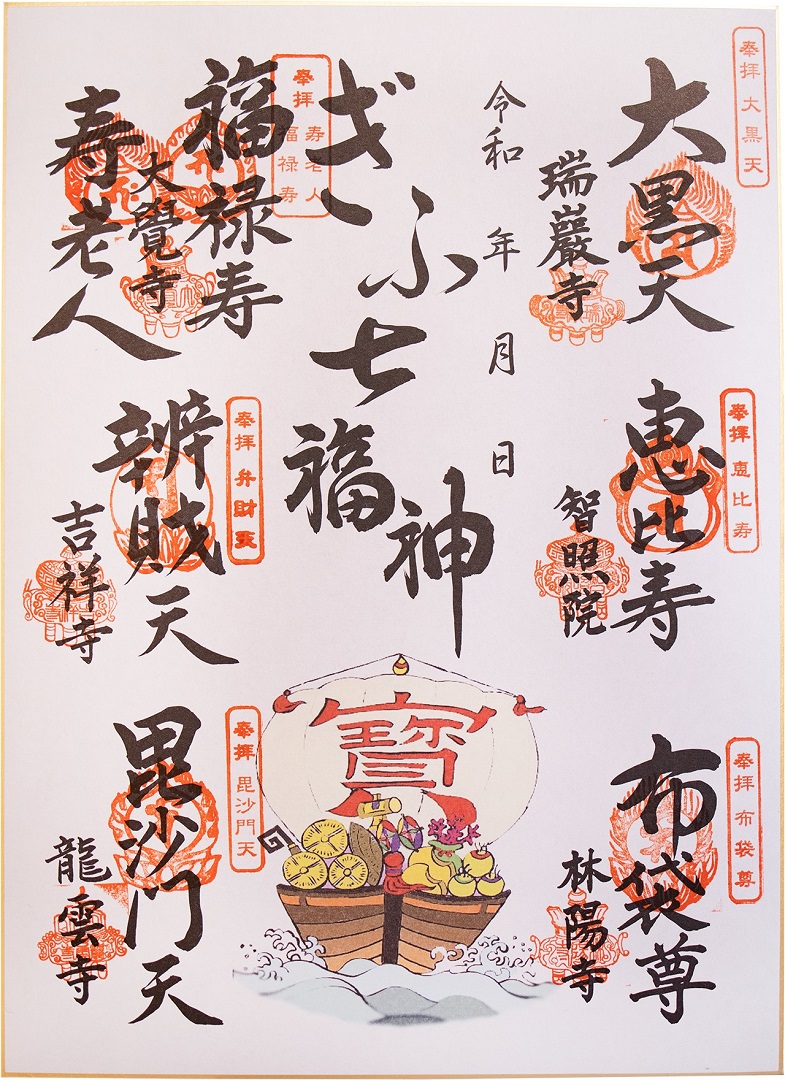 奉拝 大黒天
大黒天
瑞巖寺
奉拝 恵比寿
恵比寿
智照院
奉拝 布袋尊
布袋尊
林陽寺
令和 年 月 日
ぎふ七福神
寳
奉拝 寿老人 福禄寿
福禄寿
大覺寺
寿老人
奉拝 弁財天
辨財天
吉祥寺
奉拝 毘沙門天
毘沙門天
龍雲寺